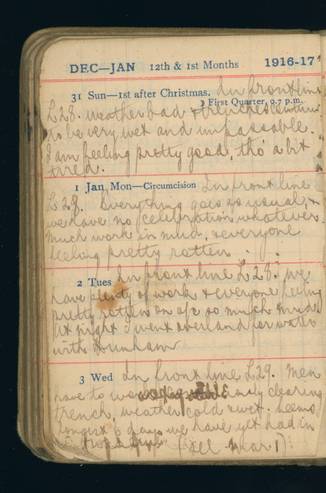 DEC—JAN 12th & 1st Months 1916-17
31 Sun—1st after Christmas. In front line
☽ First Quarter, 0.7 p.m.
L28. weather bad & trenches continue
to be very wet and impassable.
I am feeling pretty good, tho' a bit
tired.
1 Jan Mon—Circumcision In front line
L28. Everything goes as usual, &
we have no celebration whatever
Much work in mud, & everyone
feeling pretty rotten.
2 Tues In front line L28. We
have plenty of work & everyone feeling
pretty rotten on a/c so much mud
At night I went overland for water
with
3 Wed In front line L29. Men
have to clearing
trench, weather cold & wet. Seems
longest 6 days we have yet had in
(See Mar 1)